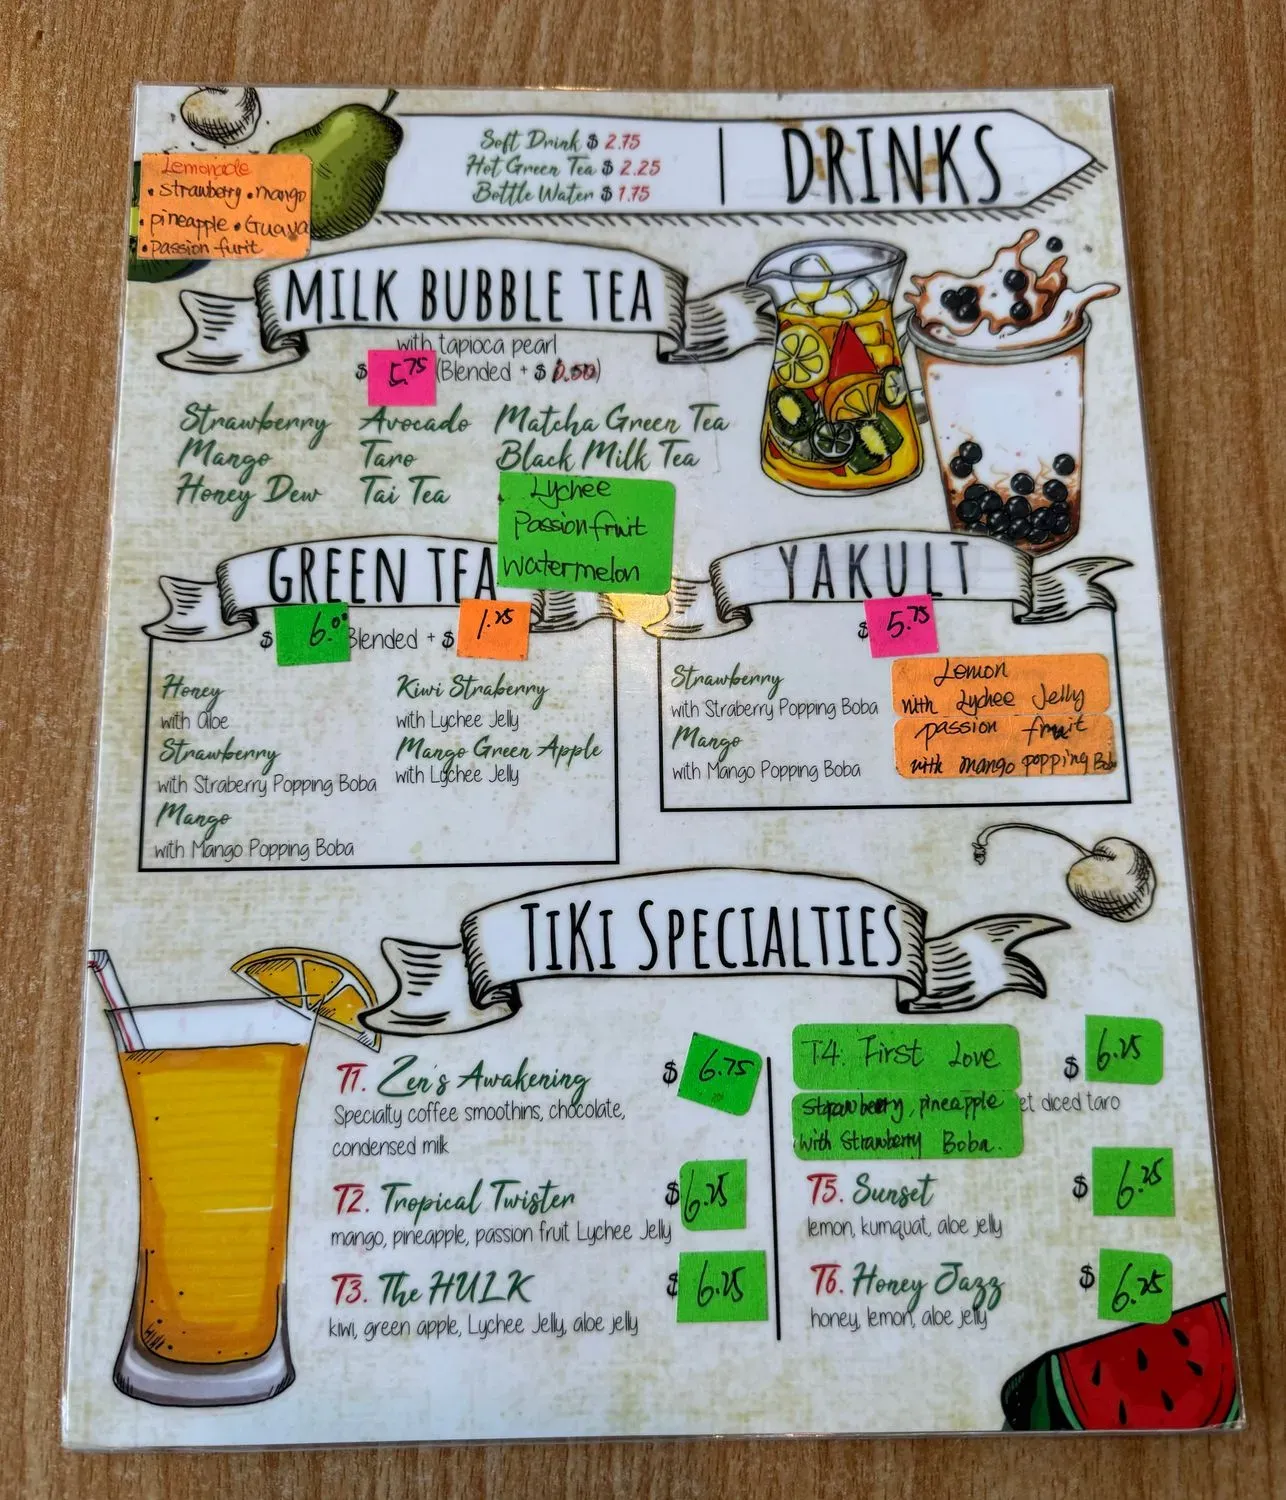 Soft Drink $ 2.75
Hot Green Tea $ 2.25
Bottle Water $ 1.75
| DRINKS
Lemonade
• Strawberry • mango
• pineapple • Guava
• Passion-furit
MILK BUBBLE TEA
with tapioca pearl
$ 5.75 (Blended + $ 0.50)
Strawberry Avocado Matcha Green Tea
Mango Taro Black Milk Tea
Honey Dew Tai Tea
Lychee
Passionfruit
Watermelon
GREEN TEA
$ 6.00 Blended + $ 1.25
Honey
with Aloe
Strawberry
with Straberry Popping Boba
Mango
with Mango Popping Boba
Kiwi Straberry
with Lychee Jelly
Mango Green Apple
with Lychee Jelly
YAKULT
$ 5.75
Strawberry
with Straberry Popping Boba
Mango
with Mango Popping Boba
Lemon
with Lychee Jelly
passion fruit
with mango popping Boba
TIKI SPECIALTIES
T1. Zen's Awakening $ 6.75
Specialty coffee smoothins, chocolate,
condensed milk
T2. Tropical Twister $ 6.25
mango, pineapple, passion fruit Lychee Jelly
T3. The HULK $ 6.25
kiwi, green apple, Lychee Jelly, aloe jelly
T4. First Love $ 6.25
strawberry, pineapple et diced taro
with Strawberry Boba.
T5. Sunset $ 6.25
lemon, kumquat, aloe jelly
T6. Honey Jazz $ 6.25
honey, lemon, aloe jelly